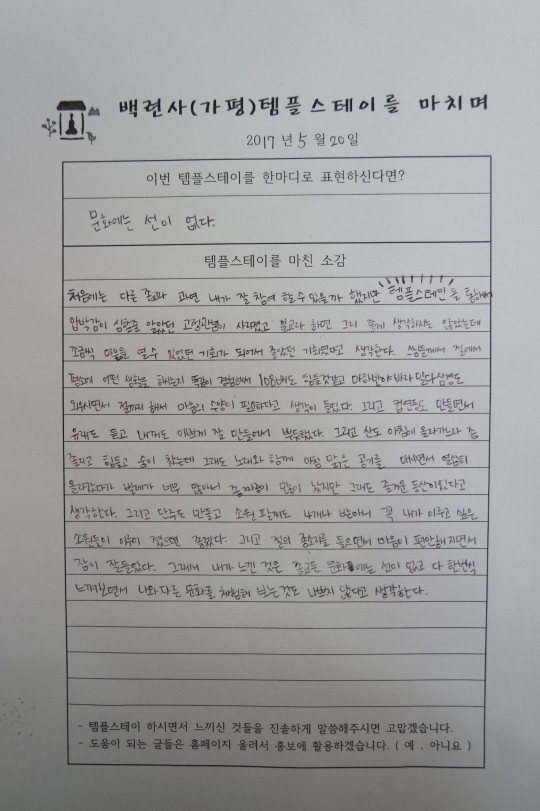 백련사(가평)템플스테이를 마치며
2017 년 5 월 20 일
이번 템플스테이를 한마디로 표현하신다면?
문화에는 선이 없다.
템플스테이를 마친 소감
처음에는 다른 종교라 과연 내가 잘 참여 할 수 있을까 했지만 템플스테이를 통해서
압박감이 심할줄 알았던 고정관념이 사라졌고 불교라 하면 그리 좋게 생각하지는 않았는데
조금씩 마음을 열 수 있었던 기회가 되어서 좋았던 기회였다고 생각한다. 쌈들에서 절에서
평소에 어떤 생활을 하는지 똑같이 경험해서 108배도 힘들었고 마하반야바라밀다심경도
외우시면서 절까지 해서 마음의 소양이 필요하다고 생각이 들었다. 그리고 컵연등도 만들면서
유래도 듣고 내꺼도 이쁘게 잘 만들어서 뿌듯했다. 그리고 산도 아침에 올라가느라 좀
졸리고 힘들고 숨이 찼는데 그래도 노래와 함께 아침 맑은 공기를 마시면서 열심히
올라갔다가 벌레가 너무 많아서 좀 짜증이 많이 났지만 그래도 즐거운 등산이었다고
생각한다. 그리고 단주도 만들고 소원 팔찌도 4개나 받아서 꼭 내가 이루고 싶은
소원들이 이루어 졌으면 좋겠다. 그리고 절의 종소리를 들으면서 마음이 편안해지면서
잠이 잘들었다. 그래서 내가 느낀 것은 종교든 문화에는 선이 없고 다 한번씩
느껴보면서 나와 다른 문화를 체험해 보는 것도 나쁘지 않다고 생각한다.
- 템플스테이 하시면서 느끼신 것들을 진솔하게 말씀해주시면 고맙겠습니다.
- 도움이 되는 글들은 홈페이지 올려서 홍보에 활용하겠습니다. ( 예 , 아니요 )